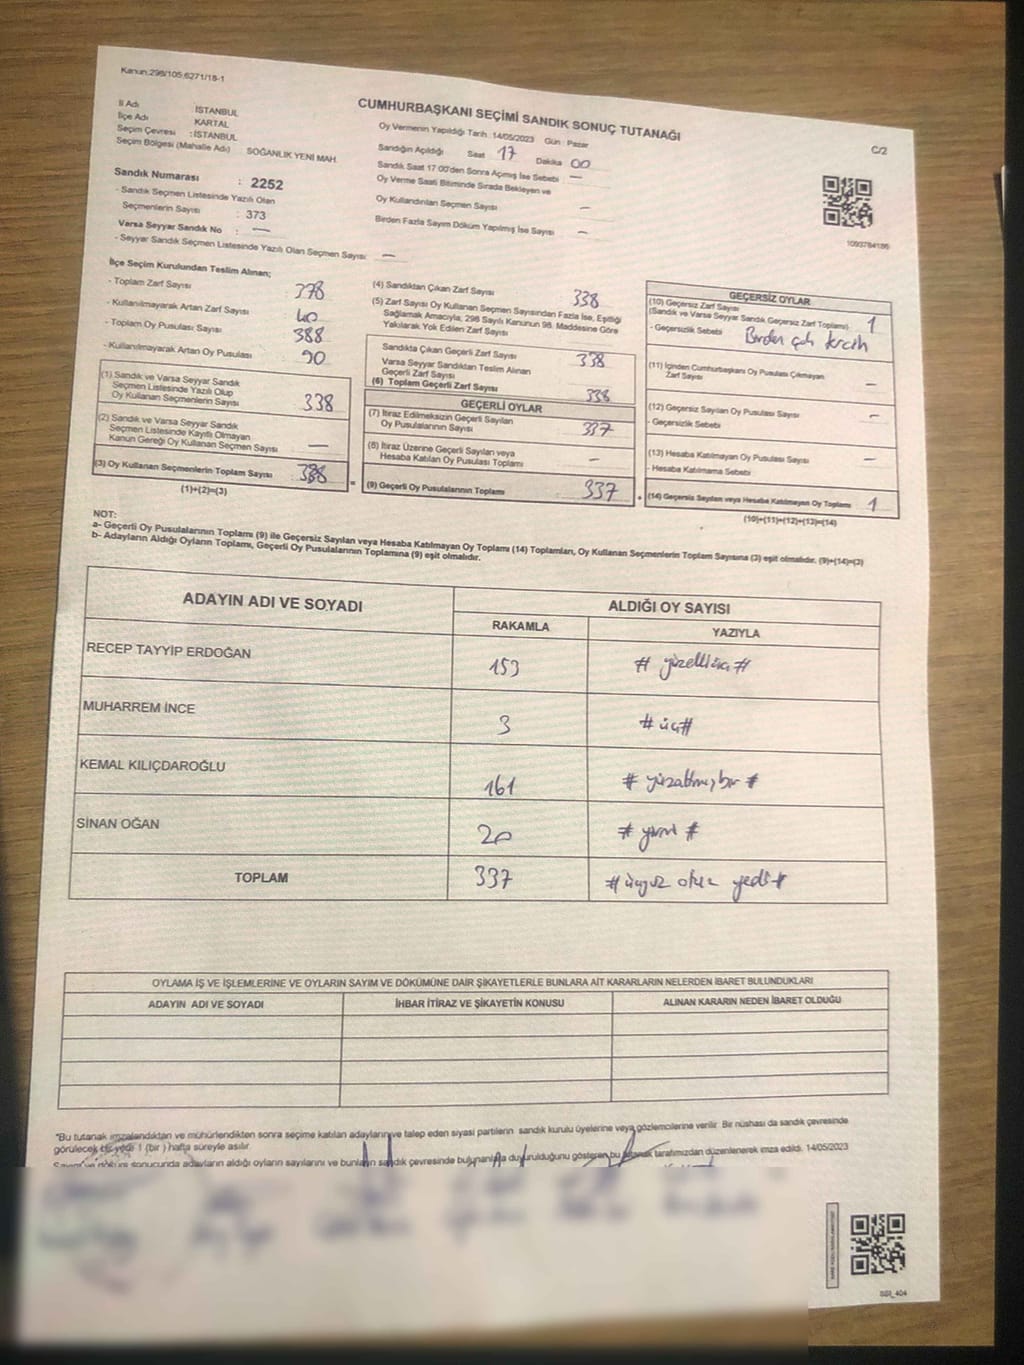 Kanun:298/105;6271/18-1
CUMHURBAŞKANI SEÇİMİ SANDIK SONUÇ TUTANAĞI
C/2
İl Adı İSTANBUL
İlçe Adı KARTAL
Seçim Çevresi : İSTANBUL
Seçim Bölgesi (Mahalle Adı) : SOĞANLIK YENİ MAH.
Sandık Numarası : 2252
- Sandık Seçmen Listesinde Yazılı Olan
Seçmenlerin Sayısı : 373
Varsa Seyyar Sandık No : —
- Seyyar Sandık Seçmen Listesinde Yazılı Olan Seçmen Sayısı : —
Oy Vermenin Yapıldığı Tarih :14/05/2023 Gün : Pazar
Sandığın Açıldığı Saat 17 Dakika 00
Sandık Saat 17:00'den Sonra Açımış İse Sebebi : —
Oy Verme Saati Bitiminde Sırada Bekleyen ve
Oy Kullandırılan Seçmen Sayısı —
Birden Fazla Sayım Döküm Yapılmış İse Sayısı —
1093784186
İlçe Seçim Kurulundan Teslim Alınan;
- Toplam Zarf Sayısı : 378
- Kullanılmayarak Artan Zarf Sayısı : 40
- Toplam Oy Pusulası Sayısı : 388
- Kullanılmayarak Artan Oy Pusulası : 90
(1) Sandık ve Varsa Seyyar Sandık
Seçmen Listesinde Yazılı Olup
Oy Kullanan Seçmenlerin Sayısı : 338
(2) Sandık ve Varsa Seyyar Sandık
Seçmen Listesinde Kayıtlı Olmayan
Kanun Gereği Oy Kullanan Seçmen Sayısı : —
(3) Oy Kullanan Seçmenlerin Toplam Sayısı : 338
(1)+(2)=(3)
(4) Sandıktan Çıkan Zarf Sayısı 338
(5) Zarf Sayısı Oy Kullanan Seçmen Sayısından Fazla İse, Eşitliği
Sağlamak Amacıyla, 298 Sayılı Kanunun 98. Maddesine Göre
Yakılarak Yok Edilen Zarf Sayısı
Sandıkta Çıkan Geçerli Zarf Sayısı : 338
Varsa Seyyar Sandıktan Teslim Alınan
Geçerli Zarf Sayısı
(6) Toplam Geçerli Zarf Sayısı : 338
GEÇERLİ OYLAR
(7) İtiraz Edilmeksizin Geçerli Sayılan
Oy Pusulalarının Sayısı : 337
(8) İtiraz Üzerine Geçerli Sayılan veya
Hesaba Katılan Oy Pusulası Toplamı : —
(9) Geçerli Oy Pusulalarının Toplamı : 337
GEÇERSİZ OYLAR
(10) Geçersiz Zarf Sayısı
(Sandık ve Varsa Seyyar Sandık Geçersiz Zarf Toplamı) : 1
- Geçersizlik Sebebi Birden çok tercih
(11) İçinden Cumhurbaşkanı Oy Pusulası Çıkmayan
Zarf Sayısı : —
(12) Geçersiz Sayılan Oy Pusulası Sayısı : —
- Geçersizlik Sebebi
(13) Hesaba Katılmayan Oy Pusulası Sayısı : —
- Hesaba Katılmama Sebebi
(14) Geçersiz Sayılan veya Hesaba Katılmayan Oy Toplamı : 1
(10)+(11)+(12)+(13)=(14)
NOT:
a- Geçerli Oy Pusulalarının Toplamı (9) ile Geçersiz Sayılan veya Hesaba Katılmayan Oy Toplamı (14) Toplamları, Oy Kullanan Seçmenlerin Toplam Sayısına (3) eşit olmalıdır. (9)+(14)=(3)
b- Adayların Aldığı Oyların Toplamı, Geçerli Oy Pusulalarının Toplamına (9) eşit olmalıdır.
ADAYIN ADI VE SOYADI ALDIĞI OY SAYISI
RAKAMLA YAZIYLA
RECEP TAYYİP ERDOĞAN 153 # yüzelliüç #
MUHARREM İNCE 3 # üç #
KEMAL KILIÇDAROĞLU 161 # yüzaltmışbir #
SİNAN OĞAN 20 # yirmi #
TOPLAM 337 # üçyüz otuz yedi #
OYLAMA İŞ VE İŞLEMLERİNE VE OYLARIN SAYIM VE DÖKÜMÜNE DAİR ŞİKAYETLERLE BUNLARA AİT KARARLARIN NELERDEN İBARET BULUNDUKLARI
ADAYIN ADI VE SOYADI İHBAR İTİRAZ VE ŞİKAYETİN KONUSU ALINAN KARARIN NEDEN İBARET OLDUĞU
"Bu tutanak imzalandıktan ve mühürlendikten sonra seçime katılan adayların ve talep eden siyasi partilerin sandık kurulu üyelerine veya gözlemcilerine verilir. Bir nüshası da sandık çevresinde
görülecek bir yerde 1 (bir ) hafta süreyle asılır.
Sayım ve döküm sonucunda adayların aldığı oyların sayılarını ve bunların sandık çevresinde bulunanlara duyurulduğunu gösteren bu tutanak tarafımızdan düzenlenerek imza edildi. 14/05/2023
SSI_404